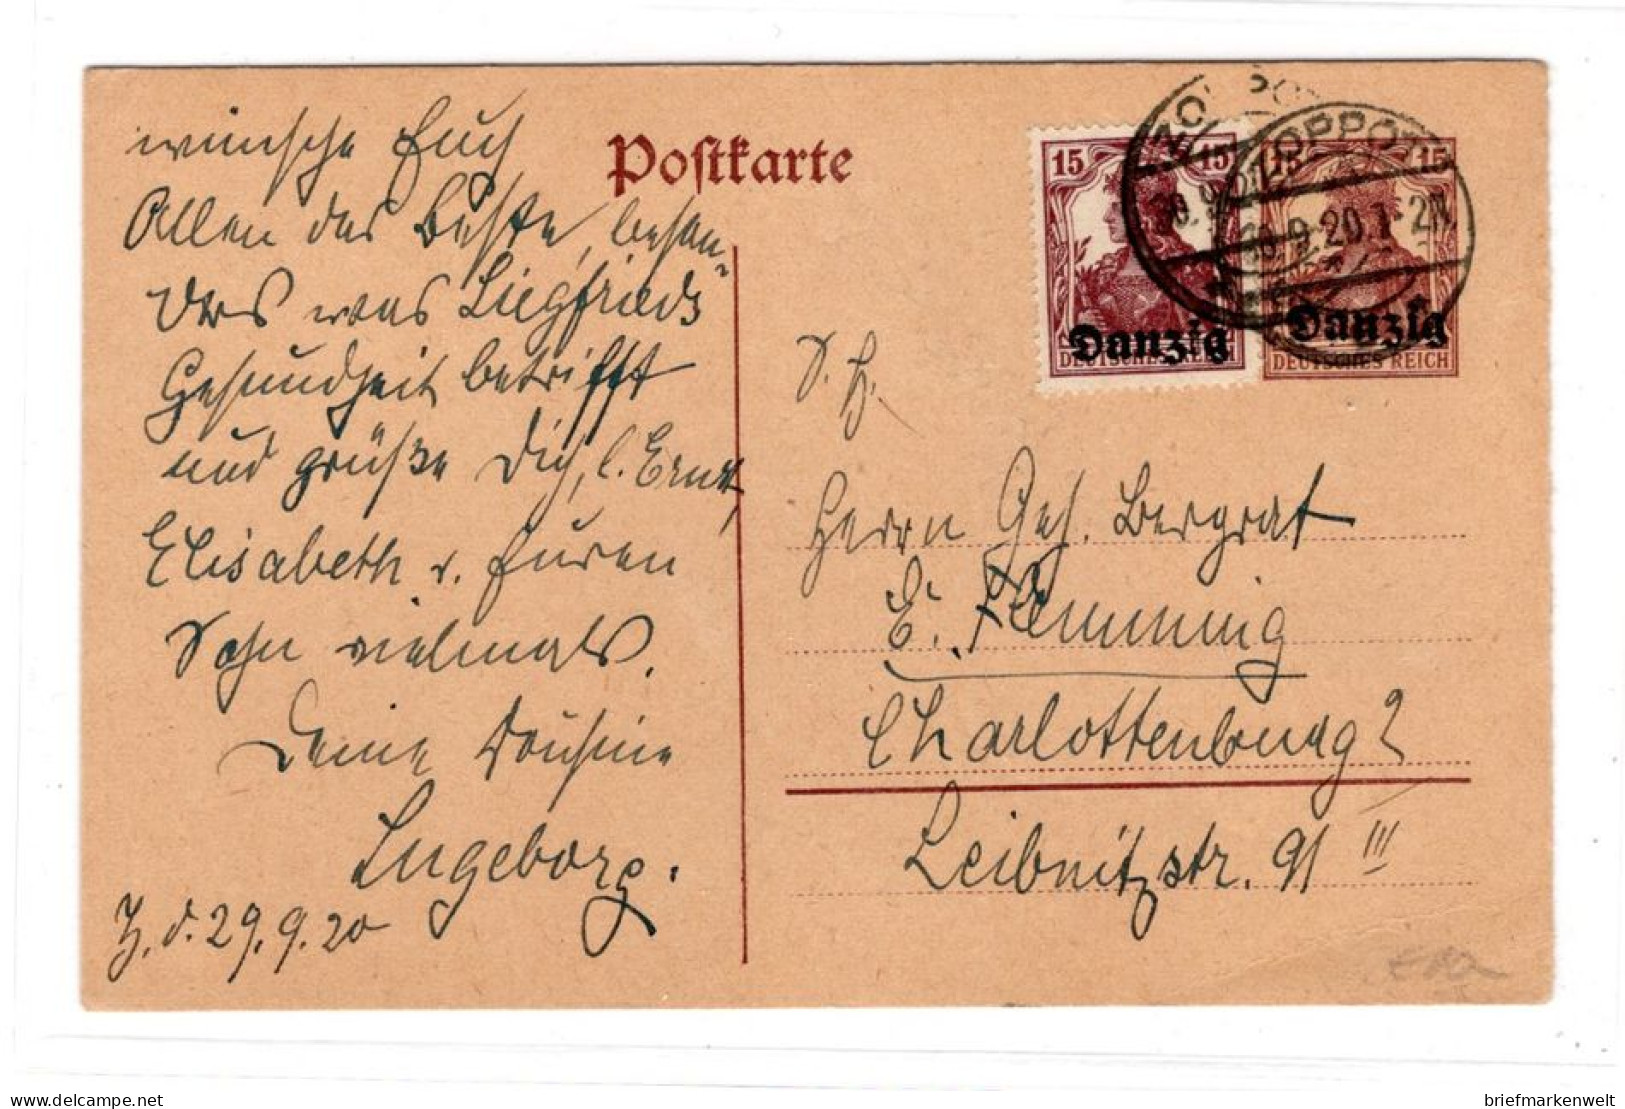 wünsche Euch
Allen das Beste, beson-
ders was Siegfrieds
Gesundheit betrifft
und grüße Dich, l. Ernst,
Elisabeth u. Euren
Sohn vielmals.
Deine Cousine
Ingeborg.
Z. d. 29.9.20
Postkarte
15 15
Danzig
DEUTSCHES REICH
15 15
Danzig
DEUTSCHES REICH
ZOPPOT
9.20
Herrn Geh. Bergrat
E. Flemming
Charlottenburg 2
Leibnitzstr. 91 III
hosted on Delcampe.net
briefmarkenwelt